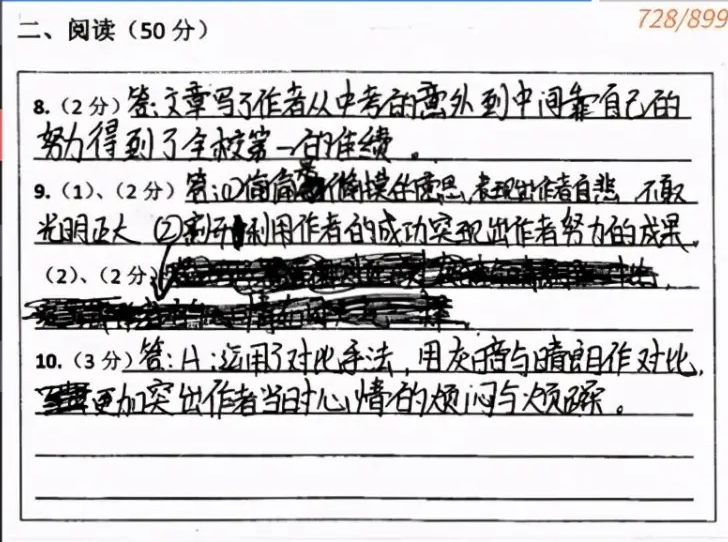 728/899
二、阅读（50 分）
8.（2 分）答:文章写了作者从中考的意外到中间靠自己的
努力得到了全校第一的佳绩。
9.（1）、（2 分）答:①偷偷 偷摸的意思,表现出作者自悲 不敢
光明正大 ② 利用作者的成功突现出作者努力的成果.
（2）、（2 分）
10.（3 分）答:A:运用了对比手法,用灰暗与晴朗作对比,
更加突出作者当时心情的烦闷与烦躁。